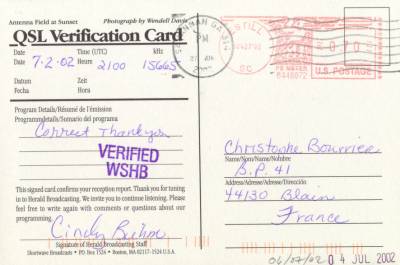 Antenna Field at Sunset Photography by Wendell Davis
QSL Verification Card
Date Time (UTC) kHz
Date 7-2-02 Heure 2100 15665
Datum Zeit
Fecha Hora
Program Details/Résumé de l'émission
Programmdetails/Sumario del programa
Correct Thank you
VERIFIED
WSHB
This signed card confirms your reception report. Thank you for tuning
in to Herald Broadcasting. We invite you to continue listening. Please
feel free to write again with comments or questions about our
programming.
Cindy
Signature of Herald Broadcasting Staff
Shortwave Broadcasts • PO Box 1524 • Boston, MA 02117-1524 U.S.A.
SAVANNAH GA
PM
SC
PB METER
U.S. POSTAGE
Christophe Bourrier
Name/Nom/Name/Nombre
B.P. 41
Address/Adresse/Adresse/Dirección
44130 Blain
France
04 JUL 2002